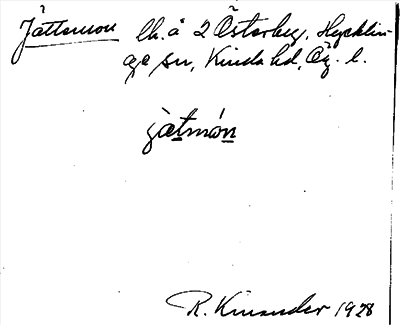 Jättemon lh. å 2 Österby, Hycklin-
ge sn, Kinda hd, Ög. l.
jàtmón
R. Kinander 1928